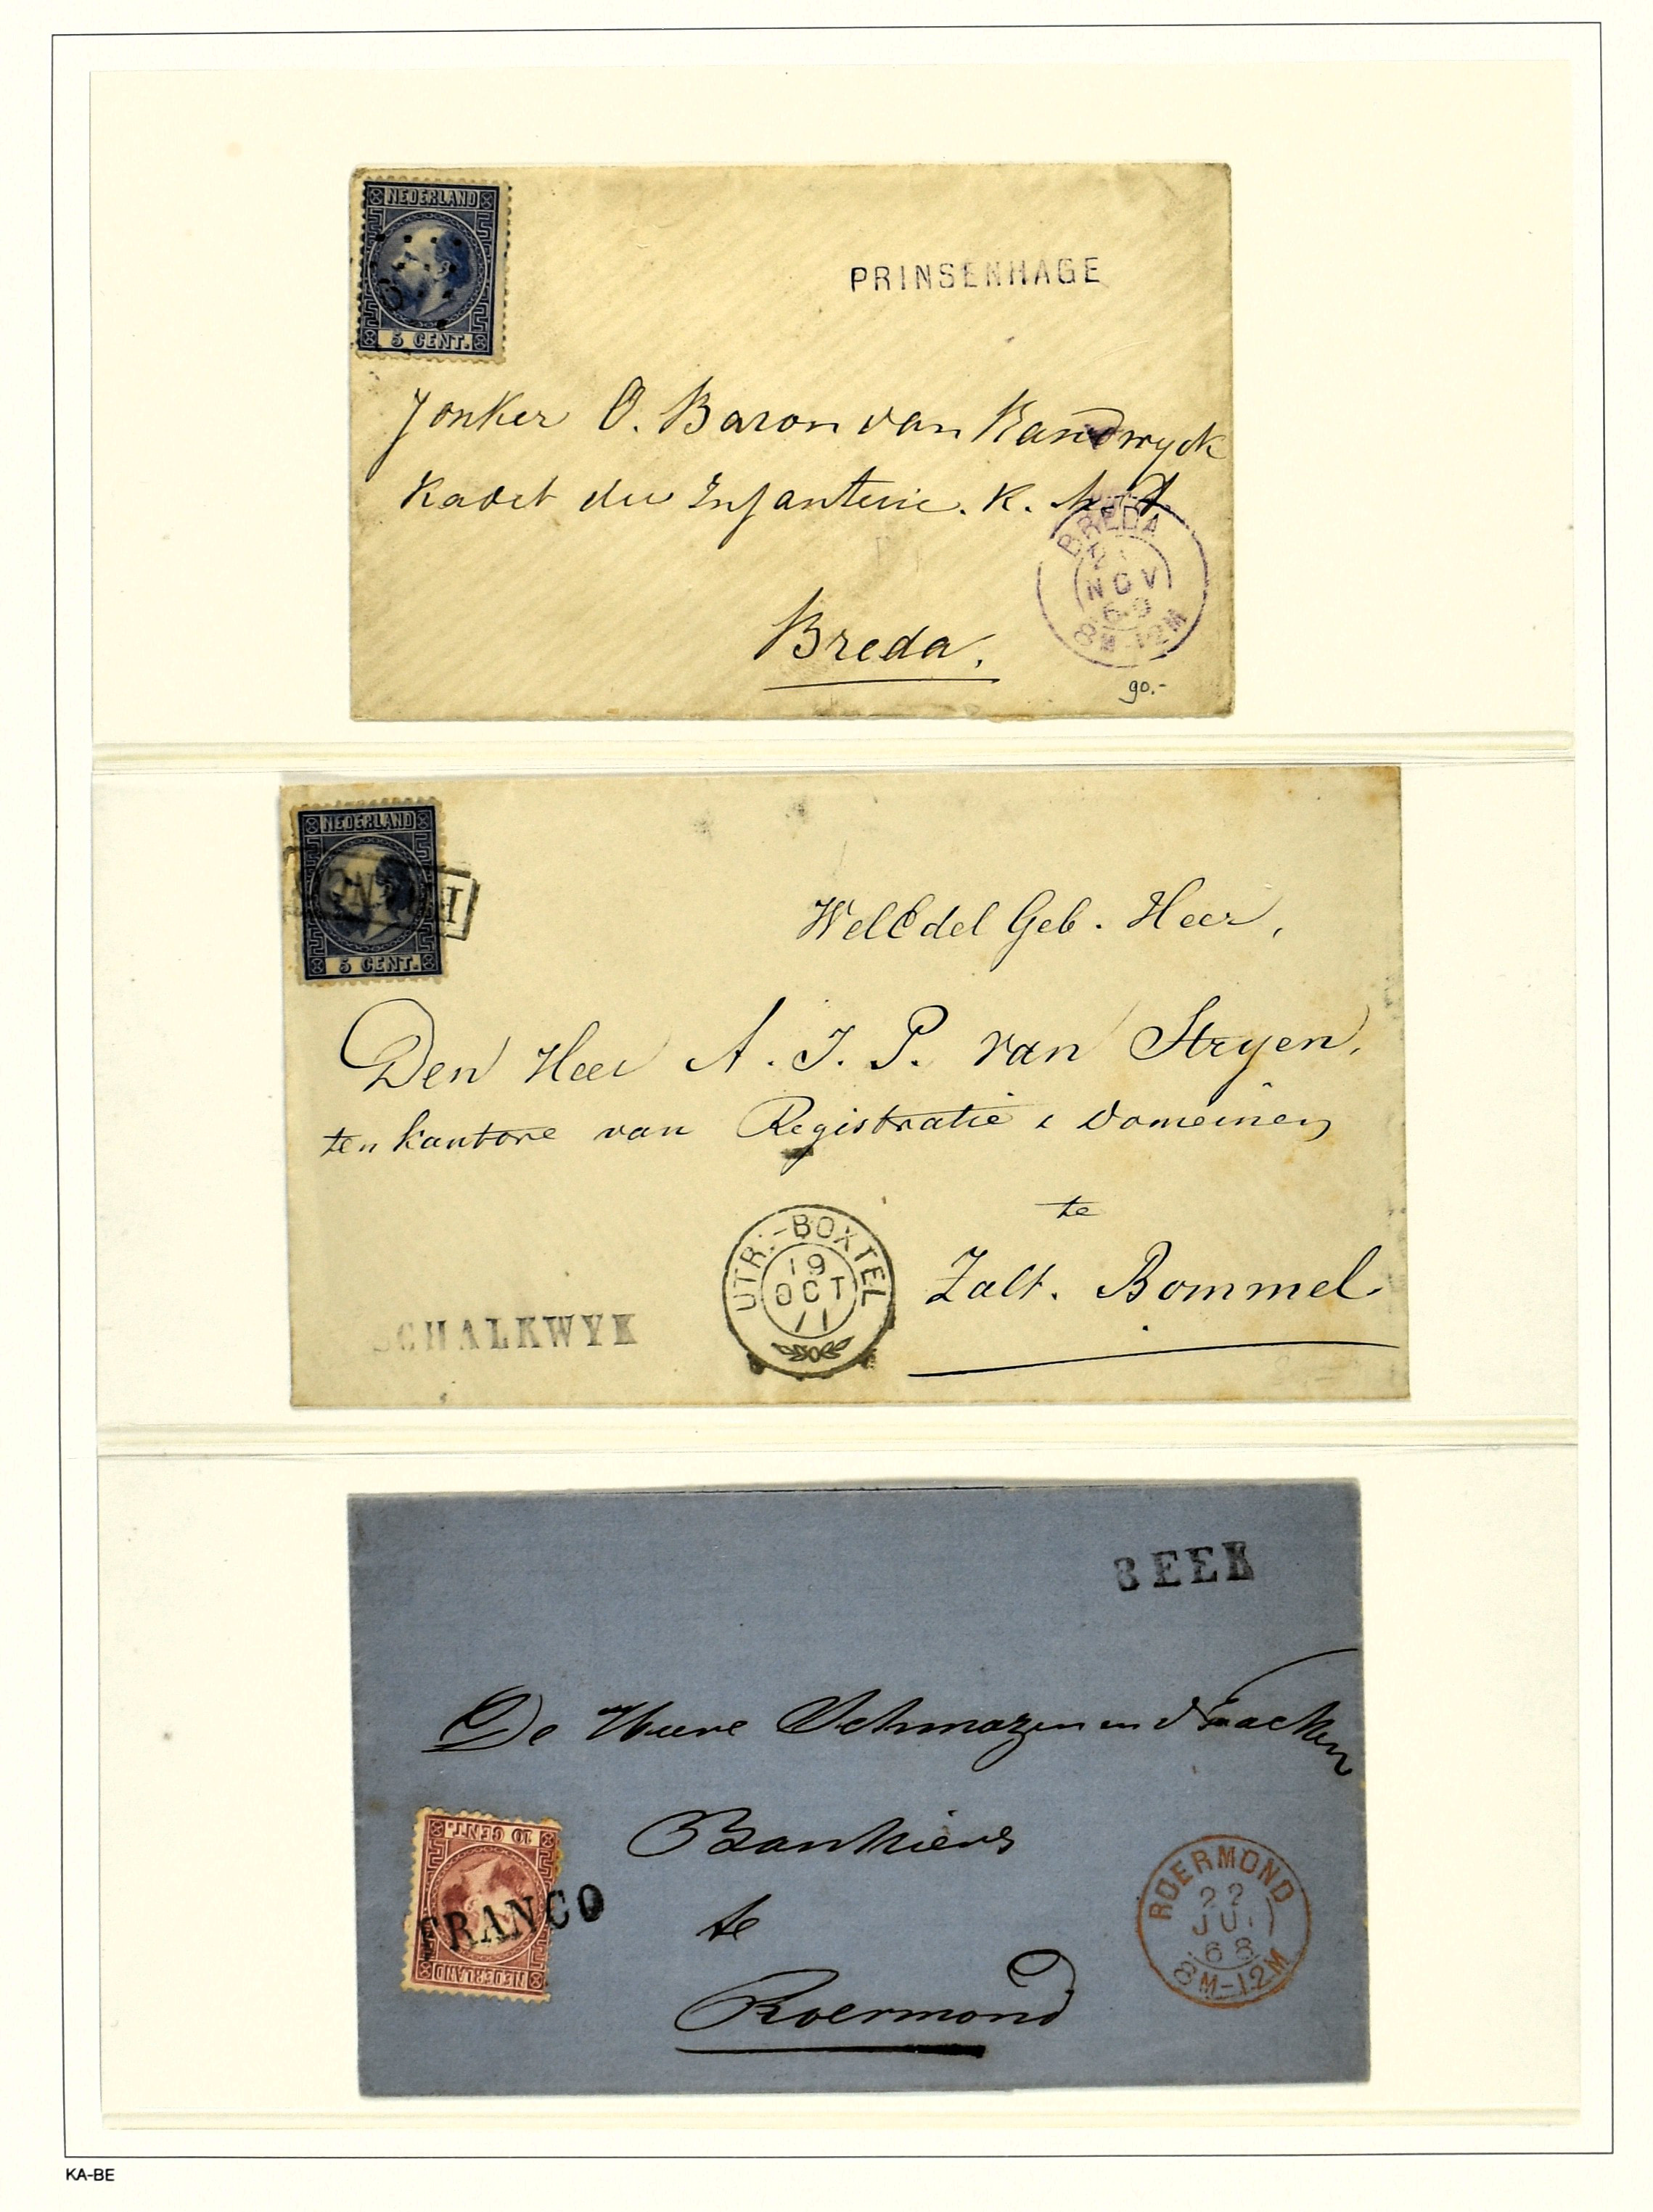 NEDERLAND
5 CENT.
PRINSENHAGE
Jonker O. Baron van Randwyck
Kadet der Infanterie. K. M. A.
BREDA
21
NOV
69
8M-12M
Breda.
90.-
NEDERLAND
5 CENT.
WelEdel Geb. Heer,
Den Heer A. J. P. van Stryen,
ten kantore van Registratie & Domeinen
te
Zalt. Bommel
UTR:-BOXTEL
19
OCT
71
SCHALKWYK
BEEK
De Heere Schmazen en
Bankiers
te
Roermond
10 CENT.
FRANCO
NEDERLAND
ROERMOND
22
JU
68
8M-12M
KA-BE